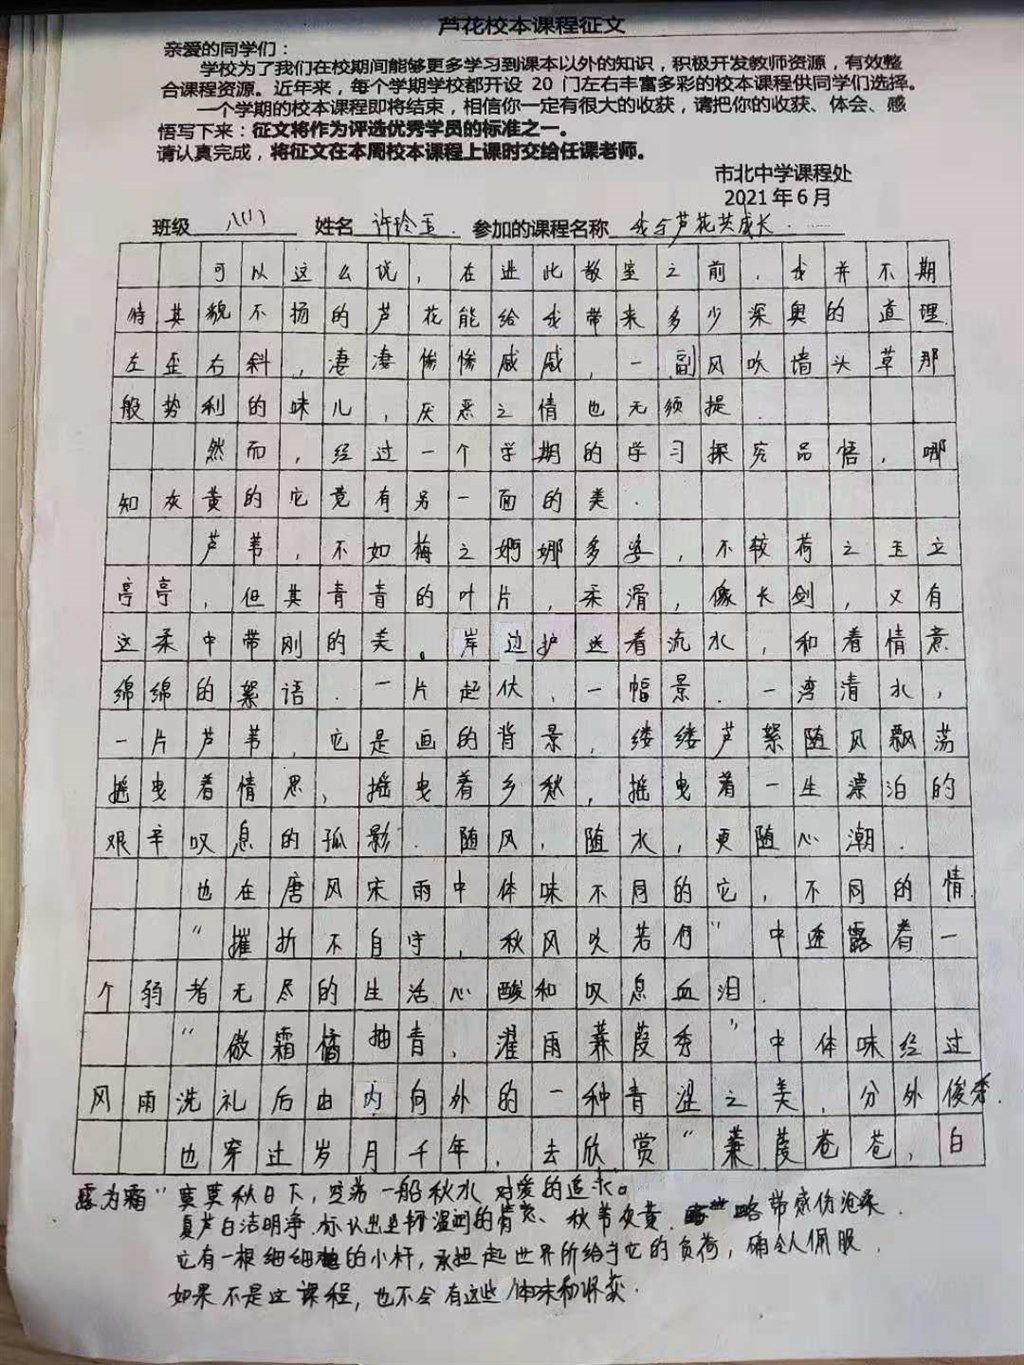 芦花校本课程征文
亲爱的同学们：
学校为了我们在校期间能够更多学习到课本以外的知识，积极开发教师资源，有效整
合课程资源。近年来，每个学期学校都开设 20 门左右丰富多彩的校本课程供同学们选择。
一个学期的校本课程即将结束，相信你一定有很大的收获，请把你的收获、体会、感
悟写下来：征文将作为评选优秀学员的标准之一。
请认真完成，将征文在本周校本课程上课时交给任课老师。
市北中学课程处
2021 年 6 月
班级 八(1) 姓名 许玲玉 参加的课程名称 我与芦花共成长
可以这么说，在进此教室之前，我并不期
待其貌不扬的芦花能给我带来多少深奥的道理.
左歪右斜，凄凄惨惨戚戚，一副风吹墙头草那
般势利的味儿，厌恶之情也无须提.
然而，经过一个学期的学习探究品悟，哪
知灰黄的它竟有另一面的美.
芦苇，不如梅之婀娜多姿，不较荷之玉立
亭亭，但其青青的叶片，柔滑，像长剑，又有
这柔中带刚的美。岸边护送着流水，和着情意
绵绵的絮语.一片起伏，一幅景.一湾清水，
一片芦苇，它是画的背景，缕缕芦絮随风飘荡
摇曳着情思，摇曳着乡愁，摇曳着一生漂泊的
艰辛叹息的孤影.随风，随水，更随心潮.
也在唐风宋雨中体味不同的它，不同的情.
“摧折不自守，秋风吹若何”中透露着一
个弱者无尽的生活心酸和叹息血泪.
“傲霜橘抽青，濯雨蒹葭秀”中体味经过
风雨洗礼后由内向外的一种青涩之美，分外俊秀.
也穿过岁月千年，去欣赏“蒹葭苍苍，白
露为霜”寞寞秋日下，空荡一船秋水 对爱的追求。
夏芦白洁明净.标认出坐轿温润的情态、秋苇灰黄. 略带感伤沧桑.
它有一根细细的小杆，承担起世界所给于它的负荷，确令人佩服.
如果不是这课程，也不会有这些体味和收获.